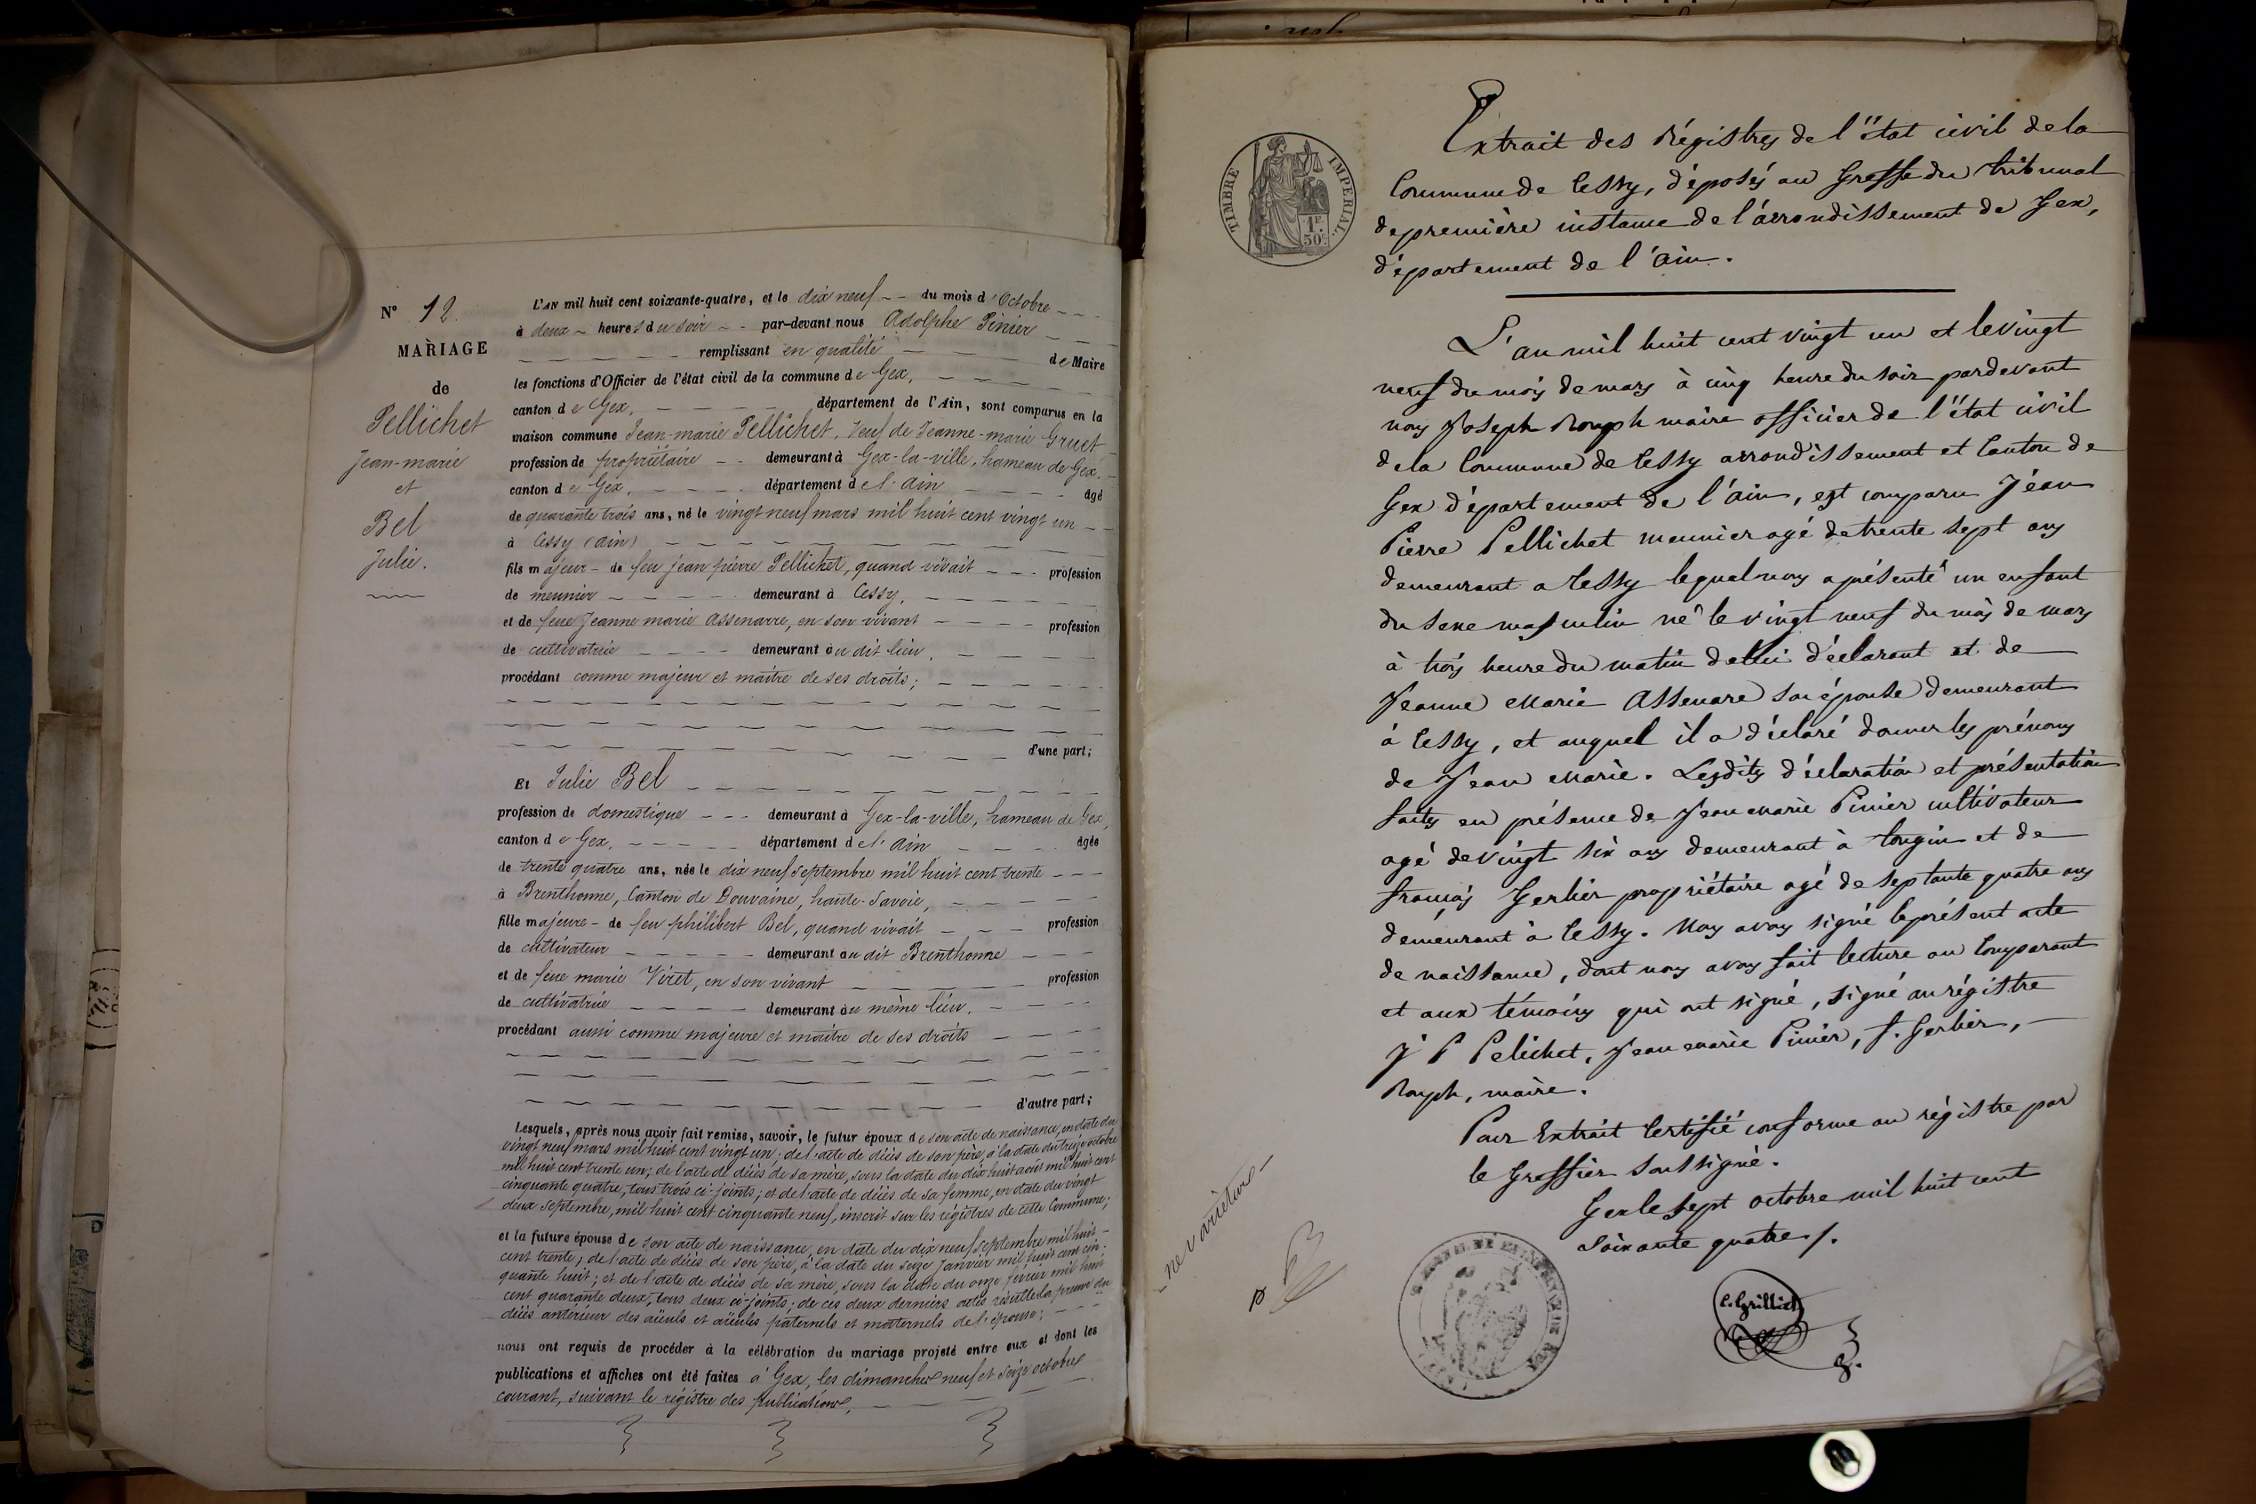 N° 12
MARIAGE
de
Pellichet
Jean-marie
et
Bel
Julie.
L'AN mil huit cent soixante-quatre, et le dix neuf du mois d'Octobre
à deux heures du soir par-devant nous Adolphe Pinier
remplissant en qualité de Maire
les fonctions d'Officier de l'état civil de la commune de Gex,
canton de Gex, département de l'Ain, sont comparus en la
maison commune Jean-marie Pellichet, Veuf de Jeanne-marie Gruet
profession de propriétaire demeurant à Gex-la-ville, hameau de Gex,
canton de Gex, département de l'ain âgé
de quarante trois ans, né le vingt neuf mars mil huit cent vingt un
à Cessy (ain)
fils majeur de feu jean pierre Pellichet, quand vivait profession
de meunier demeurant à Cessy,
et de feue Jeanne marie Assenarre, en son vivant profession
de cultivatrice demeurant au dit lieu,
procédant comme majeur et maître de ses droits;
d'une part;
Et Julie Bel
profession de domestique demeurant à Gex-la-ville, hameau de Gex,
canton de Gex, département de l'ain âgée
de trente quatre ans, née le dix neuf septembre mil huit cent trente
à Brenthonne, Canton de Douvaine, haute-Savoie,
fille majeure de feu philibert Bel, quand vivait profession
de cultivateur demeurant au dit Brenthonne
et de feue marie Viret, en son vivant profession
de cultivatrice demeurant au même lieu,
procédant aussi comme majeure et maître de ses droits
d'autre part;
Lesquels, après nous avoir fait remise, savoir, le futur époux de son acte de naissance, en date du
vingt neuf mars mil huit cent vingt un; de l'acte de décès de son père, à la date du treize octobre
mil huit cent trente un; de l'acte de décès de sa mère, sous la date du dix huit août mil huit cent
cinquante quatre, tous trois ci-joints; et de l'acte de décès de sa femme, en date du vingt
deux septembre, mil huit cent cinquante neuf, inscrit sur les régistres de cette Commune;
et la future épouse de son acte de naissance, en date du dix neuf septembre mil huit
cent trente; de l'acte de décès de son père, à la date du seize janvier mil huit cent cin-
quante huit; et de l'acte de décès de sa mère, sous la date du onze février mil huit
cent quarante deux, tous deux ci-joints; de ces deux derniers actes résulte la preuve du
décès antérieur des aïeuls et aïeules paternels et maternels de l'épouse;
nous ont requis de procéder à la célébration du mariage projeté entre eux et dont les
publications et affiches ont été faites à Gex, les dimanches neuf et seize octobre
courant, suivant le régistre des publications,
TIMBRE IMPERIAL.
1F.
50c
Extrait des Régistres de l'état civil de la
Commune de Cessy, déposés au Greffe du tribunal
de première instance de l'arrondissement de Gex,
département de l'ain.
L'an mil huit cent vingt un et le vingt
neuf du mois de mars à cinq heure du soir pardevant
nous Joseph Rouph maire officier de l'état civil
de la Commune de Cessy arrondissement et Canton de
Gex département de l'ain, est comparu Jéan
Pierre Pellichet meunier agé de trente sept ans
demeurant a Cessy lequel nous a présenté un enfant
du sexe masculin né le vingt neuf du mois de mars
à trois heure du matin de lui déclarant et de
Jeanne Marie Assenare son épouse demeurant
à Cessy, et auquel il a déclaré donner les prénoms
de Jean Marie. Lesdits déclaration et présentation
faites en présence de Jean Marie Pinier cultivateur
agé de vingt six ans demeurant à Tougin et de
françois Gerlier propriétaire agé de septante quatre ans
demeurant à Cessy. Nous avons signé le présent acte
de naissance, dont nous avons fait lecture au Comparant
et aux témoins qui ont signé, signé au régistre
J P Pelichet, Jean Marie Pinier, f. Gerlier,
Rouph, maire.
Pour Extrait Certifié conforme au régistre par
le Greffier soussigné.
Gex le sept octobre mil huit cent
soixante quatre /.
ne varietur